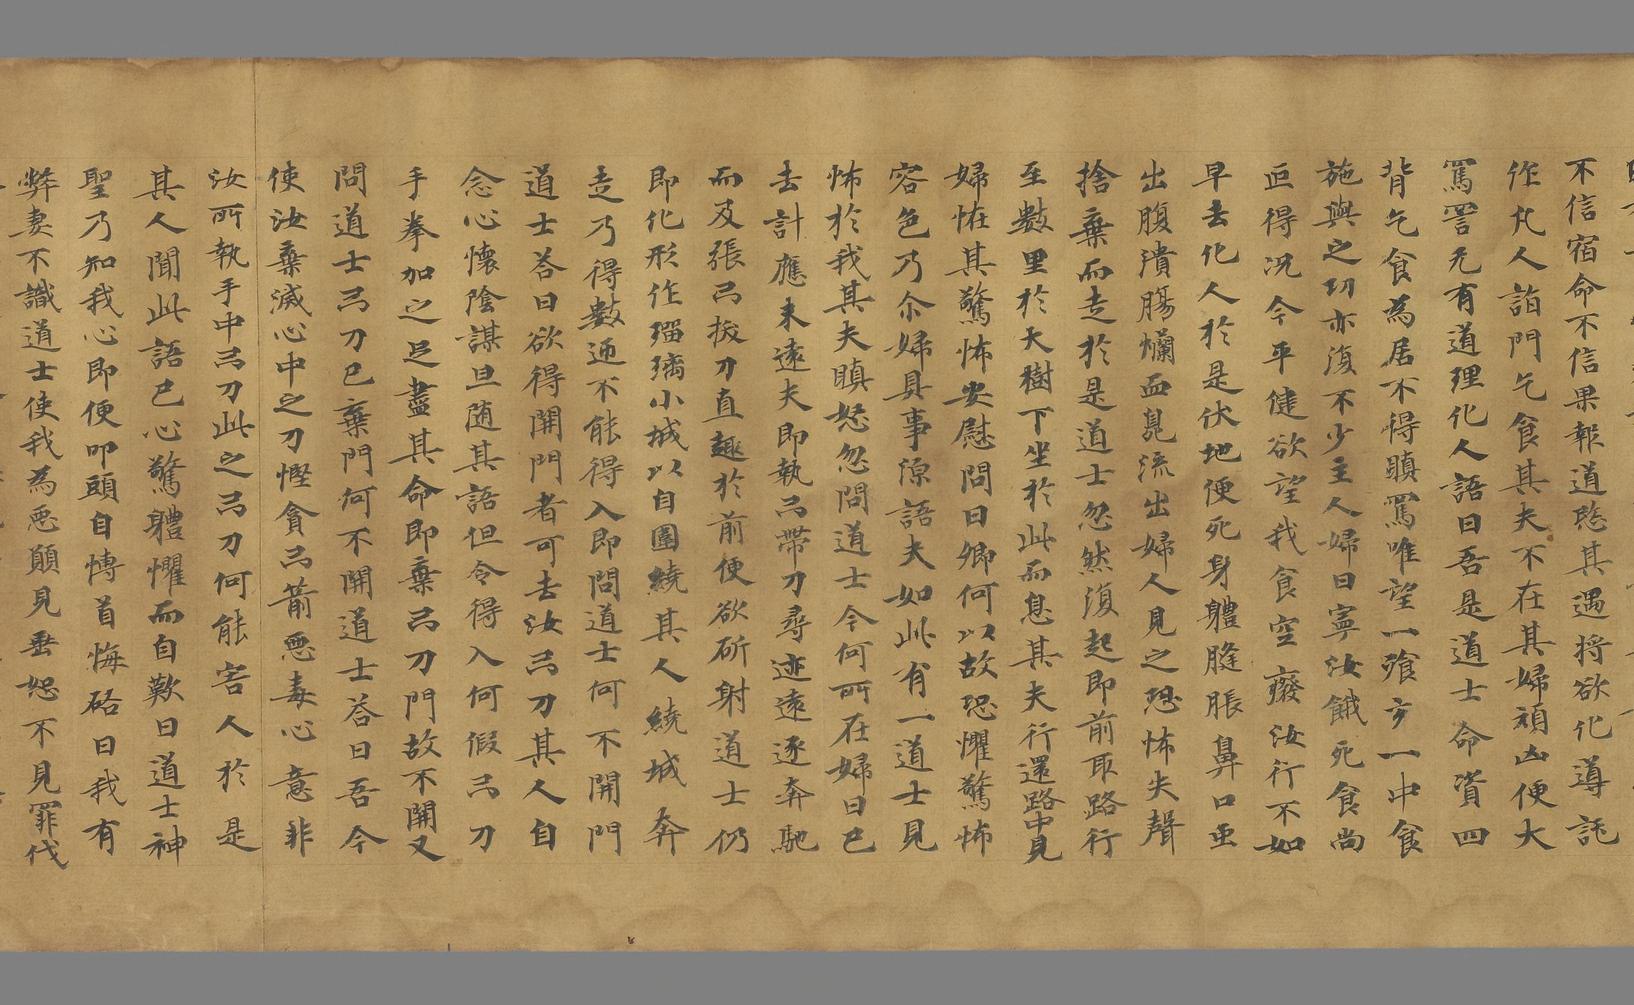 不信宿命不信果報道愍其遇将欲化導託
作凡人詣門乞食其夫不在其婦頑凶便大
罵詈无有道理化人語曰吾是道士命資四
背乞食為居不得瞋罵唯望一飡方一中食
施與之切亦復不少主人婦曰寧汝餓死食尚
叵得况今平健欲望我食空癈汝行不如
早去化人於是伏地便死身軆膖脹鼻口亟
出腹潰腸爛血髡流出婦人見之恐怖失聲
捨棄而走於是道士忽然復起即前取路行
至數里於大樹下坐於此而息其夫行還路中見
婦恠其驚怖安慰問曰卿何以故恐懼驚怖
容色乃尒婦具事源語夫如此有一道士見
怖於我其夫瞋怒忽問道士今何所在婦曰已
去計應未遠夫即執弓帶刀尋迹遠逐奔馳
而及張弓拔刀直趣於前便欲斫射道士仍
即化形作瑠璃小城以自圍繞其人繞城奔
走乃得數迊不能得入即問道士何不開門
道士荅曰欲得開門者可去汝弓刀其人自
念心懷陰謀且随其語但令得入何假弓刀
手拳加之足盡其命即棄弓刀門故不開又
問道士弓刀已棄門何不開道士荅曰吾令
使汝棄滅心中之刀慳貪弓箭惡毒心意非
汝所執手中弓刀此之弓刀何能害人於是
其人聞此語已心驚軆懼而自歎曰道士神
聖乃知我心即便叩頭自慱首悔硌曰我有
弊妻不識道士使我為惡願見垂恕不見罪伐